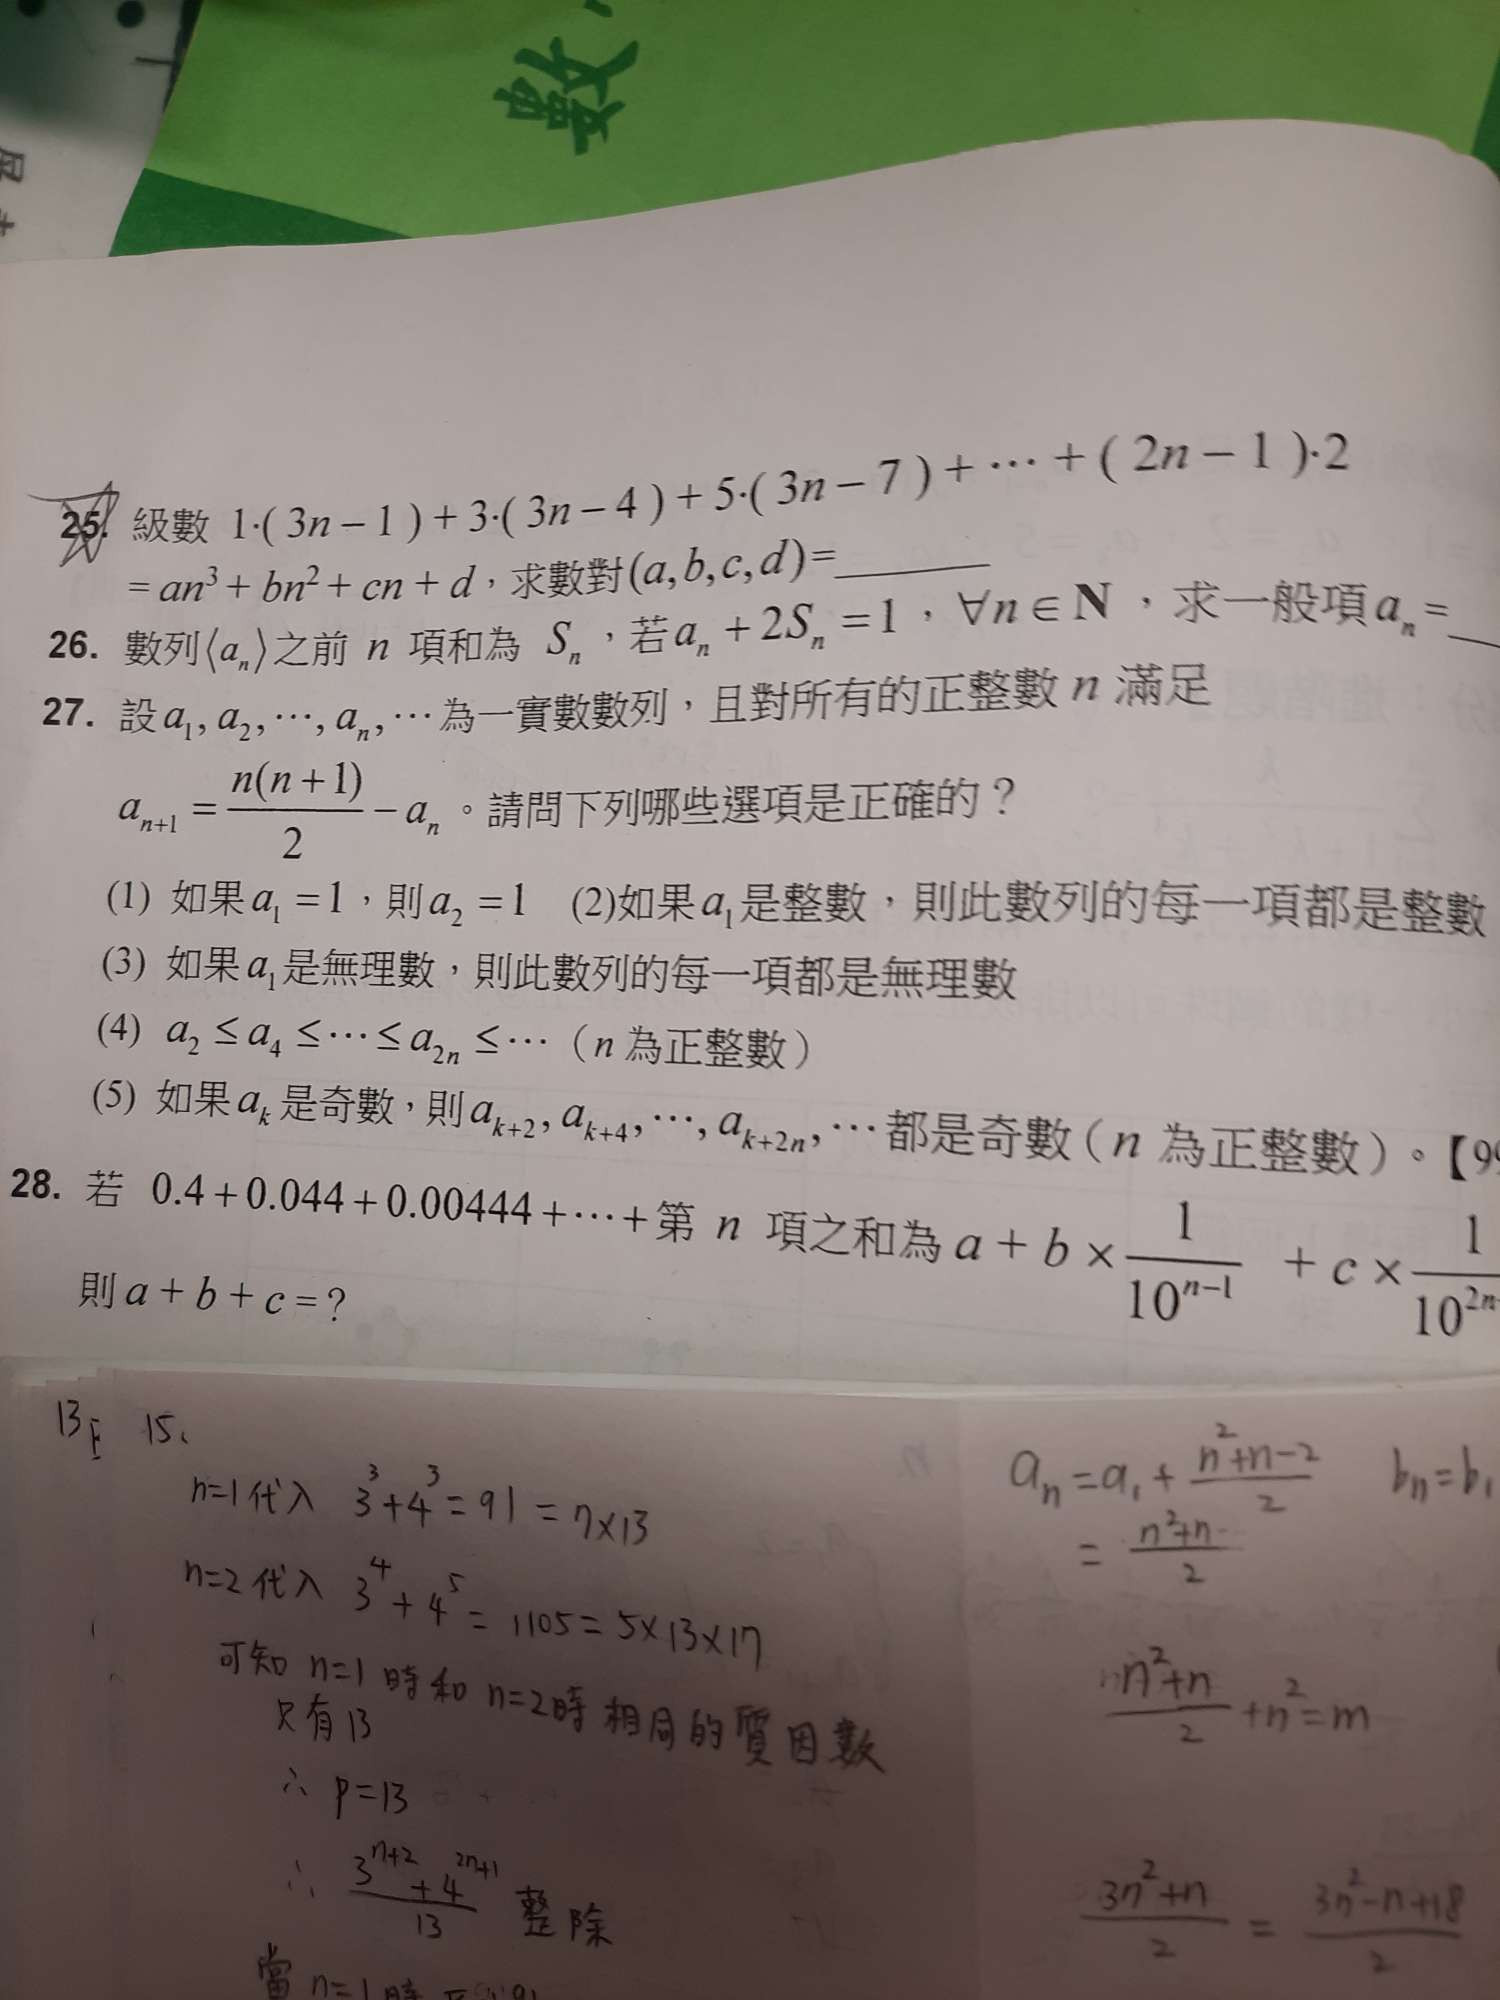 數
25. 級數 1·(3n−1)+3·(3n−4)+5·(3n−7)+⋯+(2n−1)·2
=an³+bn²+cn+d，求數對(a,b,c,d)=______
26. 數列⟨aₙ⟩之前 n 項和為 Sₙ，若aₙ+2Sₙ=1，∀n∈N，求一般項aₙ=__
27. 設a₁, a₂, ⋯, aₙ, ⋯為一實數數列，且對所有的正整數 n 滿足
aₙ₊₁ = n(n+1)/2 − aₙ。請問下列哪些選項是正確的？
(1) 如果a₁=1，則a₂=1 (2)如果a₁是整數，則此數列的每一項都是整數
(3) 如果a₁是無理數，則此數列的每一項都是無理數
(4) a₂≤a₄≤⋯≤a₂ₙ≤⋯（n為正整數）
(5) 如果aₖ是奇數，則aₖ₊₂, aₖ₊₄, ⋯, aₖ₊₂ₙ, ⋯都是奇數（n 為正整數）。【99
28. 若 0.4+0.044+0.00444+⋯+第 n 項之和為a+b×1/10ⁿ⁻¹ +c×1/10²ⁿ
則a+b+c=?
15、
n=1代入 3³+4³=91=7×13
n=2代入 3⁴+4⁵=1105=5×13×17
可知 n=1時和 n=2時相同的質因數
只有13
∴ p=13
∴ (3ⁿ⁺²+4²ⁿ⁺¹)/13 整除
當 n=1時
aₙ=a₁+(n²+n−2)/2 bₙ=b₁
=(n²+n)/2
(n²+n)/2+n²=m
(3n²+n)/2=(3n²−n+18)/2